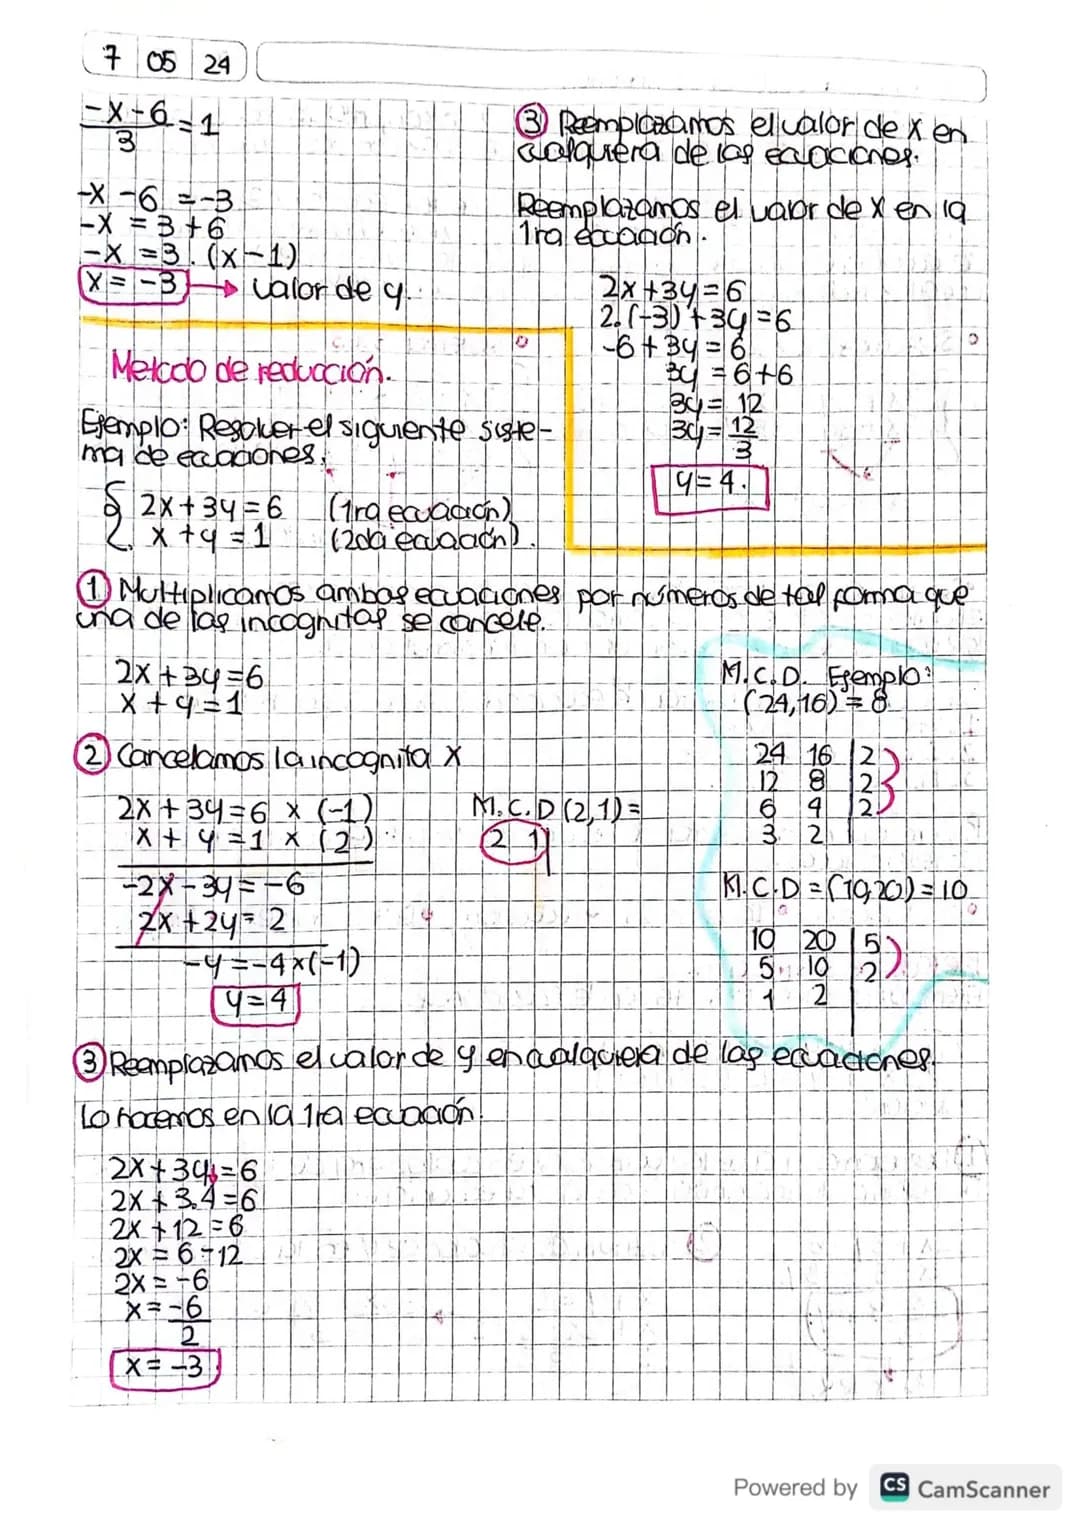 7 05 24
-x-6 = 1
3
-x -6 = -3
-x = 3+6
-x = 3 . (x-1)
x = -3 → valor de y.
③ Reemplazamos el valor de x en
cualquiera de las ecuaciones.
Reemplazamos el valor de x en la
1ra ecuación.
2x+3y=6
2.(-3)+3y=6
-6+3y=6
3y = 6+6
3y = 12
3y = 12
3
y=4.
Metodo de reducción.
Ejemplo: Resolver el siguiente siste-
ma de ecuaciones.
{ 2x+3y=6 (1ra ecuación)
x+y=1 (2da ecuación).
① Multiplicamos ambas ecuaciones por números de tal forma que
una de las incognitas se cancele.
2x+3y=6
x+y=1
② Cancelamos la incognita x
2x+3y=6 x (-1)
x+y=1 x (2)
-2x-3y=-6
2x+2y=2
-y=-4x(-1)
y=4
M.C.D (2,1)=
2 1
M.C.D. Ejemplo:
(24,16) = 8
24 16 | 2
12 8 | 2
6 4 | 2
3 2
M.C.D = (10,20) = 10
10 20 | 5
5 10 | 2
1 2
③ Reemplazamos el valor de y en cualquiera de las ecuaciones.
Lo hacemos en la 1ra ecuación.
2x+3y=6
2x+3.4=6
2x+12=6
2x = 6-12
2x = -6
x = -6
2
x = -3
Powered by CS CamScanner